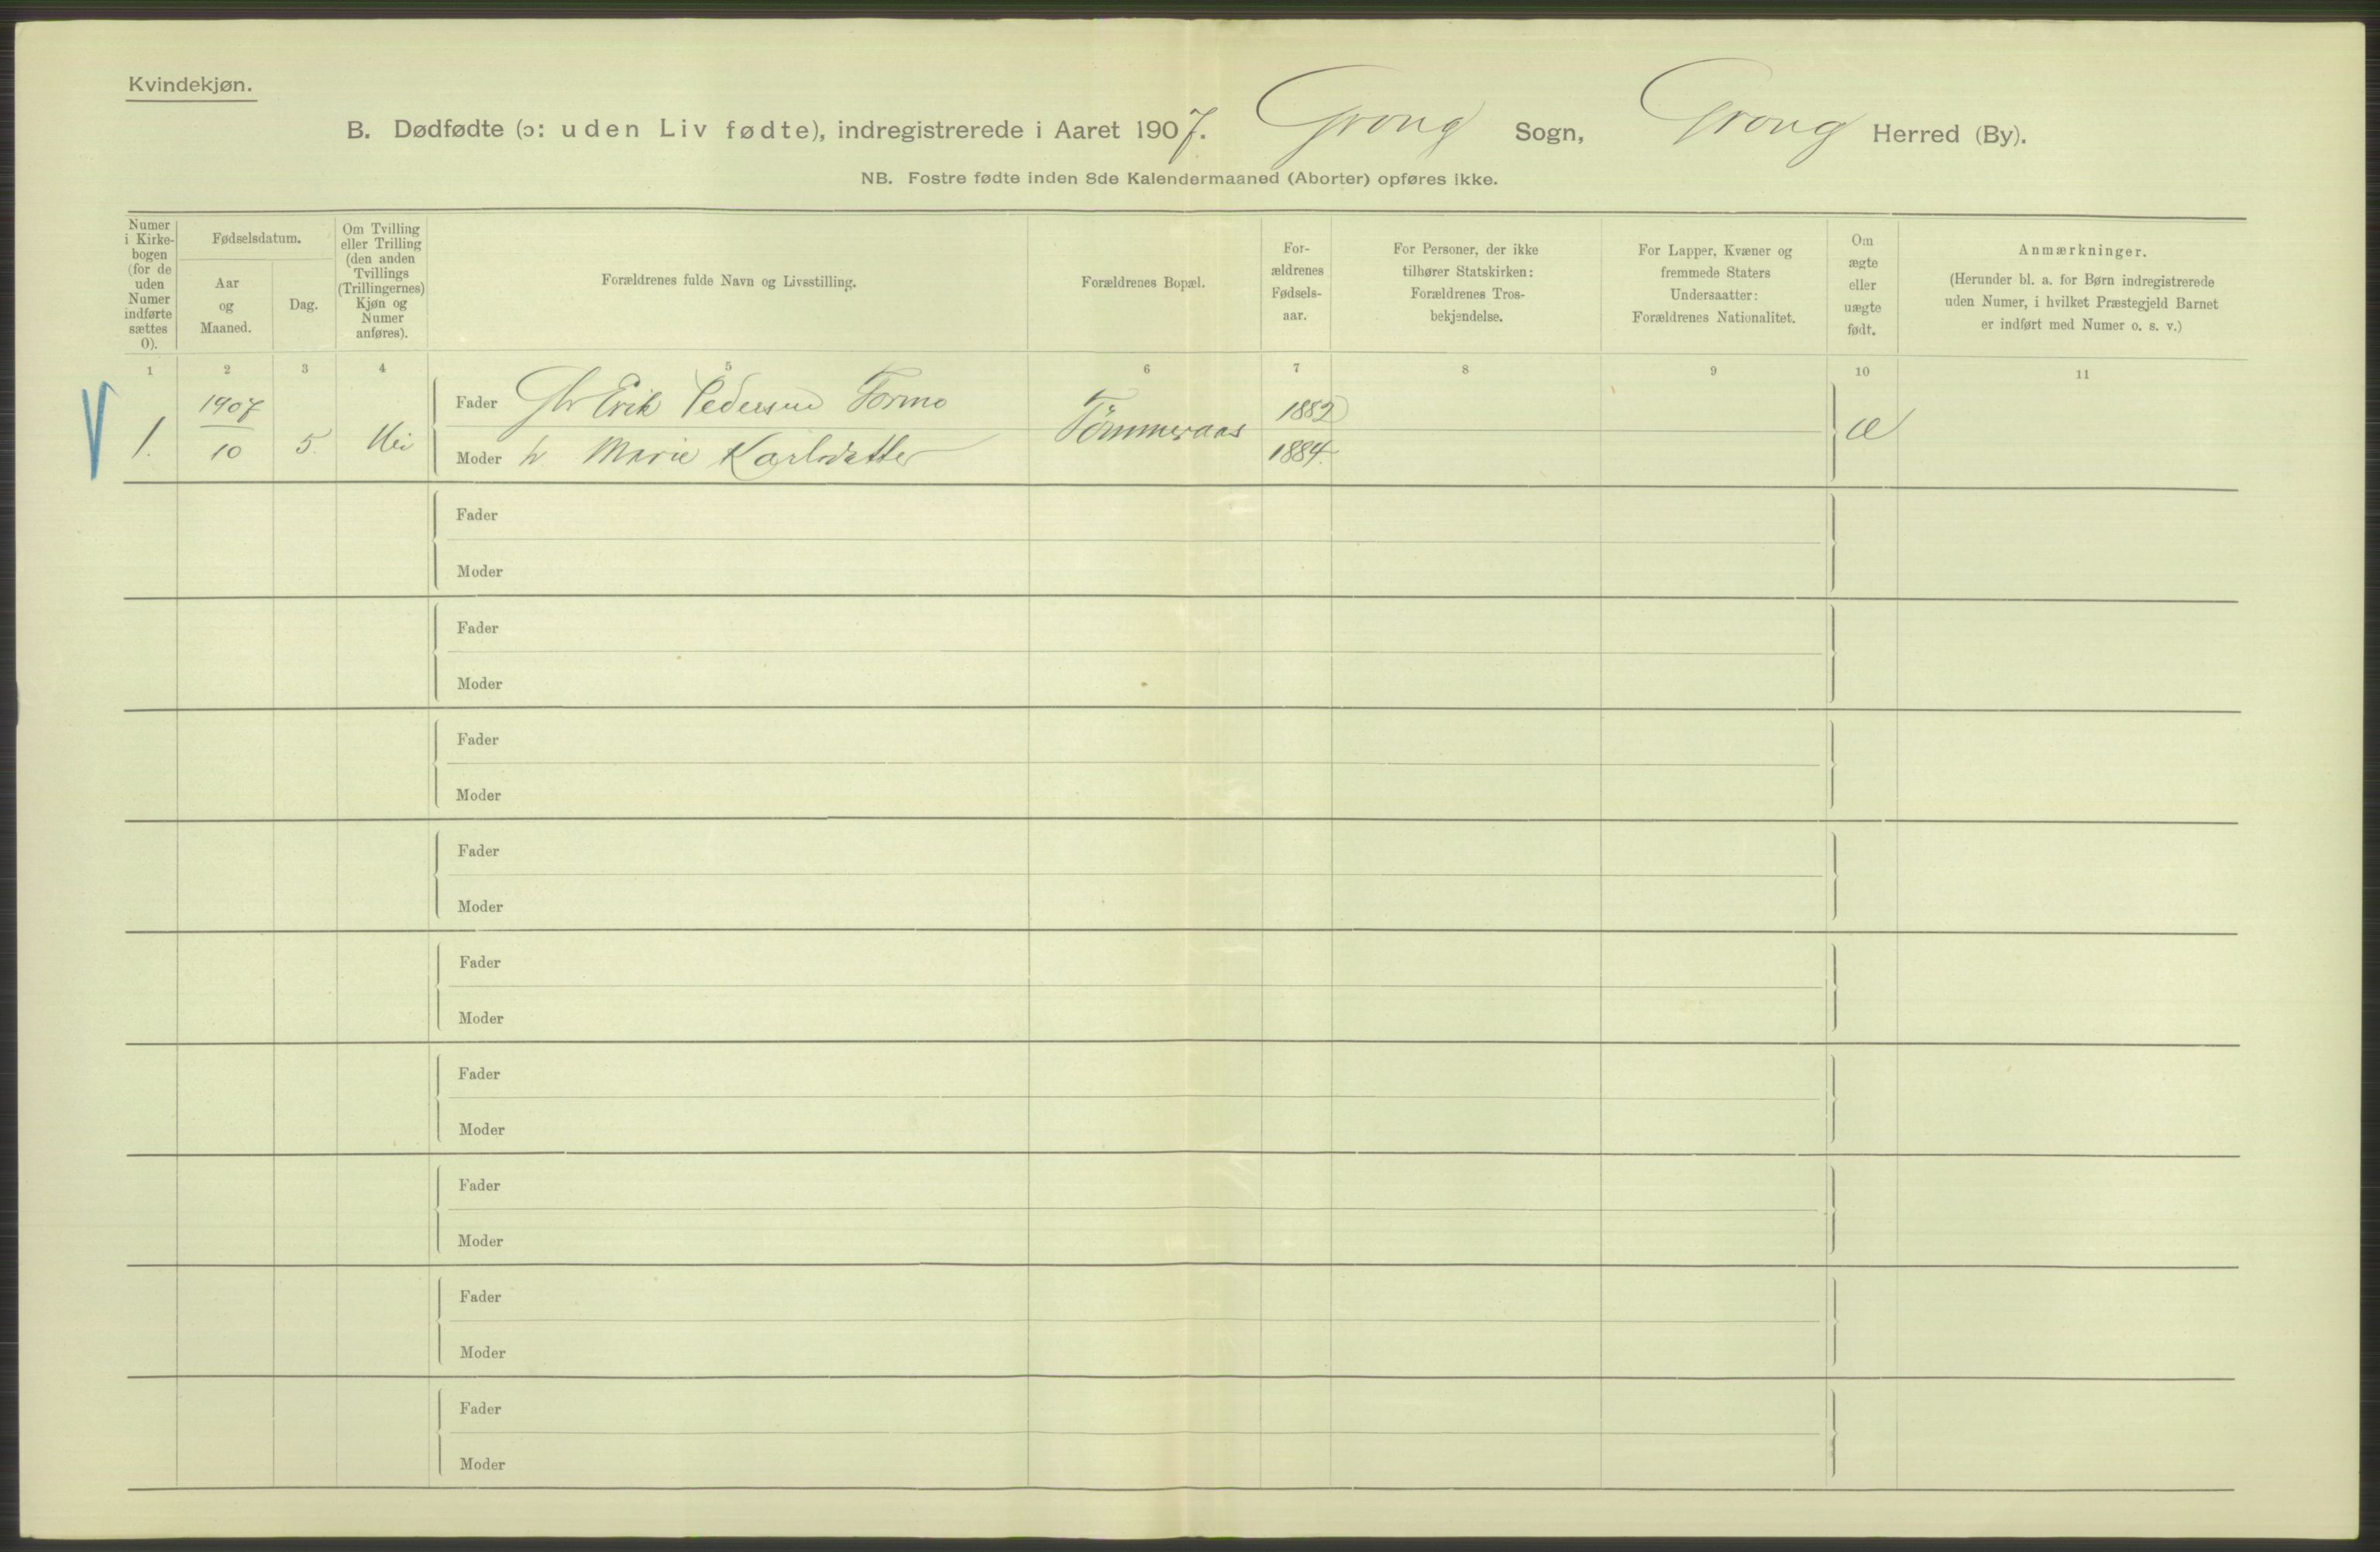 Kvindekjøn.
B. Dødfødte (ɔ: uden Liv fødte), indregistrerede i Aaret 1907. Grong Sogn, Grong Herred (By).
NB. Fostre fødte inden 8de Kalendermaaned (Aborter) opføres ikke.
Numer
i Kirke-
bogen
(for de
uden
Numer
indførte
sættes
0).
Fødselsdatum.
Aar
og
Maaned.
Dag.
Om Tvilling
eller Trilling
(den anden
Tvillings
(Trillingernes)
Kjøn og
Numer
anføres).
Forældrenes fulde Navn og Livsstilling.
Forældrenes Bopæl.
For-
ældrenes
Fødsels-
aar.
For Personer, der ikke
tilhører Statskirken:
Forældrenes Tros-
bekjendelse.
For Lapper, Kvæner og
fremmede Staters
Undersaatter:
Forældrenes Nationalitet.
Om
ægte
eller
uægte
født.
Anmærkninger.
(Herunder bl. a. for Børn indregistrerede
uden Numer, i hvilket Præstegjeld Barnet
er indført med Numer o. s. v.)
1 2 3 4 5 6 7 8 9 10 11
1. 1907
10 5. Nei
Fader Erik Pedersen Formo
Moder h Marie Karlsdatter
Tømmeraas
1882
1884.
æ
Fader
Moder
Fader
Moder
Fader
Moder
Fader
Moder
Fader
Moder
Fader
Moder
Fader
Moder
Fader
Moder
Fader
Moder